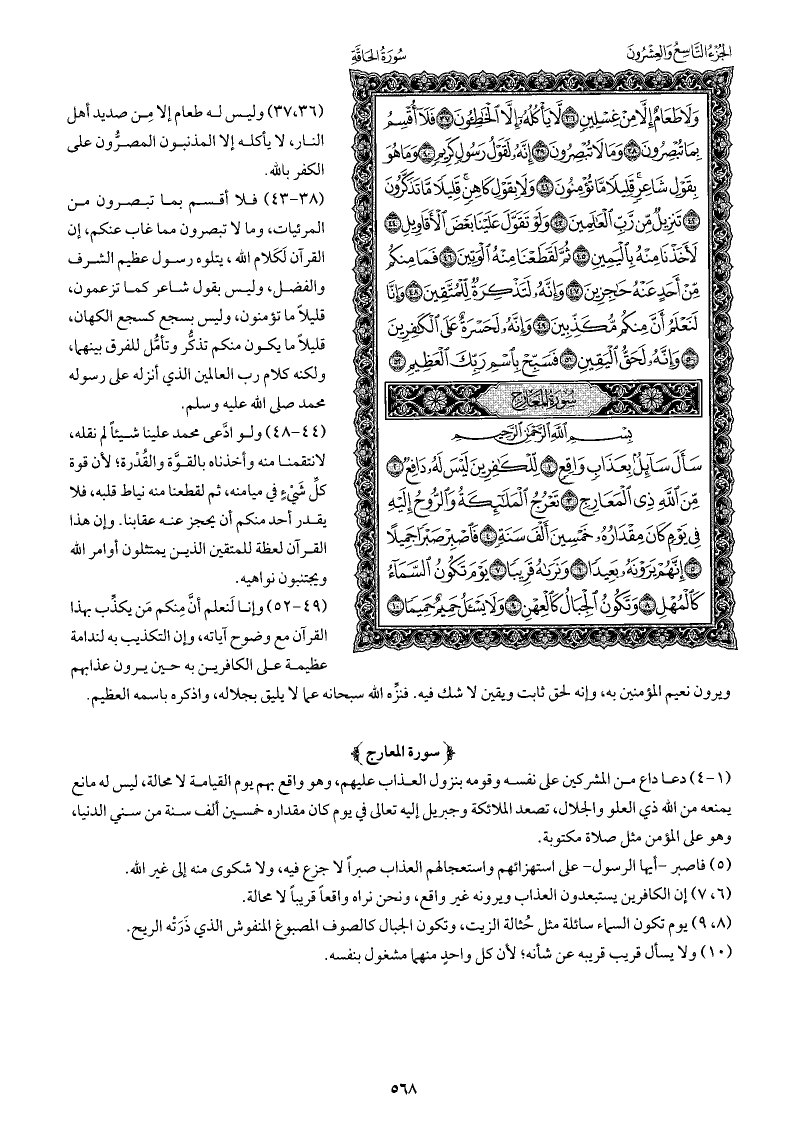 الجزء التاسع والعشرون
سورة الحاقة
وَلَا طَعَامٌ إِلَّا مِنْ غِسْلِينٍ ٣٦ لَّا يَأْكُلُهُ إِلَّا الْخَاطِئُونَ ٣٧ فَلَا أُقْسِمُ
بِمَا تُبْصِرُونَ ٣٨ وَمَا لَا تُبْصِرُونَ ٣٩ إِنَّهُ لَقَوْلُ رَسُولٍ كَرِيمٍ ٤٠ وَمَا هُوَ
بِقَوْلِ شَاعِرٍ قَلِيلًا مَّا تُؤْمِنُونَ ٤١ وَلَا بِقَوْلِ كَاهِنٍ قَلِيلًا مَّا تَذَكَّرُونَ
٤٢ تَنزِيلٌ مِّن رَّبِّ الْعَالَمِينَ ٤٣ وَلَوْ تَقَوَّلَ عَلَيْنَا بَعْضَ الْأَقَاوِيلِ ٤٤
لَأَخَذْنَا مِنْهُ بِالْيَمِينِ ٤٥ ثُمَّ لَقَطَعْنَا مِنْهُ الْوَتِينَ ٤٦ فَمَا مِنكُم
مِّنْ أَحَدٍ عَنْهُ حَاجِزِينَ ٤٧ وَإِنَّهُ لَتَذْكِرَةٌ لِّلْمُتَّقِينَ ٤٨ وَإِنَّا
لَنَعْلَمُ أَنَّ مِنكُم مُّكَذِّبِينَ ٤٩ وَإِنَّهُ لَحَسْرَةٌ عَلَى الْكَافِرِينَ
٥٠ وَإِنَّهُ لَحَقُّ الْيَقِينِ ٥١ فَسَبِّحْ بِاسْمِ رَبِّكَ الْعَظِيمِ ٥٢
سورة المعارج
بِسْمِ اللَّهِ الرَّحْمَٰنِ الرَّحِيمِ
سَأَلَ سَائِلٌ بِعَذَابٍ وَاقِعٍ ١ لِّلْكَافِرِينَ لَيْسَ لَهُ دَافِعٌ ٢
مِّنَ اللَّهِ ذِي الْمَعَارِجِ ٣ تَعْرُجُ الْمَلَائِكَةُ وَالرُّوحُ إِلَيْهِ
فِي يَوْمٍ كَانَ مِقْدَارُهُ خَمْسِينَ أَلْفَ سَنَةٍ ٤ فَاصْبِرْ صَبْرًا جَمِيلًا
٥ إِنَّهُمْ يَرَوْنَهُ بَعِيدًا ٦ وَنَرَاهُ قَرِيبًا ٧ يَوْمَ تَكُونُ السَّمَاءُ
كَالْمُهْلِ ٨ وَتَكُونُ الْجِبَالُ كَالْعِهْنِ ٩ وَلَا يَسْأَلُ حَمِيمٌ حَمِيمًا ١٠
(٣٧،٣٦) وليس له طعام إلا مِن صديد أهل
النار، لا يأكله إلا المذنبون المصرُّون على
الكفر بالله.
(٣٨-٤٣) فـلا أقسم بما تبصرون من
المرئيات، وما لا تبصرون مما غاب عنكم، إن
القرآن لَكَلام الله، يتلوه رسول عظيم الشرف
والفضل، وليس بقول شاعر كما تزعمون،
قليلاً ما تؤمنون، وليس بسجع كسجع الكهان،
قليلاً ما يكون منكم تذكُّر وتأمُّل للفرق بينهما،
ولكنه كلام رب العالمين الذي أنزله على رسوله
محمد صلى الله عليه وسلم.
(٤٤-٤٨) ولو ادَّعى محمد علينا شيئاً لم نقله،
لانتقمنا منه وأخذناه بالقوَّة والقُدْرة؛ لأن قوة
كلِّ شَيْءٍ في ميامنه، ثم لقطعنا منه نياط قلبه، فلا
يقدر أحد منكم أن يحجز عنه عقابنا. وإن هذا
القرآن لعظة للمتقين الذين يمتثلون أوامر الله
ويجتنبون نواهيه.
(٤٩-٥٢) وإنـا لَنعلم أنَّ مِنكم مَن يكذِّب بهذا
القرآن مع وضوح آياته، وإن التكذيب به لندامة
عظيمة على الكافرين به حين يرون عذابهم
ويرون نعيم المؤمنين به، وإنه لحق ثابت ويقين لا شك فيه. فنزِّه الله سبحانه عما لا يليق بجلاله، واذكره باسمه العظيم.
﴿ سورة المعارج ﴾
(١-٤) دعـا داع من المشركين على نفسه وقومه بنزول العـذاب عليهم، وهو واقع بهم يوم القيامة لا محالة، ليس له مانع
يمنعه من الله ذي العلو والجلال، تصعد الملائكة وجبريل إليه تعالى في يوم كان مقداره خمسين ألف سنة من سني الدنيا،
وهو على المؤمن مثل صلاة مكتوبة.
(٥) فاصبر -أيها الرسول- على استهزائهم واستعجالهم العذاب صبراً لا جزع فيه، ولا شكوى منه إلى غير الله.
(٦، ٧) إن الكافرين يستبعدون العذاب ويرونه غير واقع، ونحن نراه واقعاً قريباً لا محالة.
(٨، ٩) يوم تكون السماء سائلة مثل حُثالة الزيت، وتكون الجبال كالصوف المصبوغ المنفوش الذي ذَرَتْه الريح.
(١٠) ولا يسأل قريب قريبه عن شأنه؛ لأن كل واحدٍ منهما مشغول بنفسه.
٥٦٨